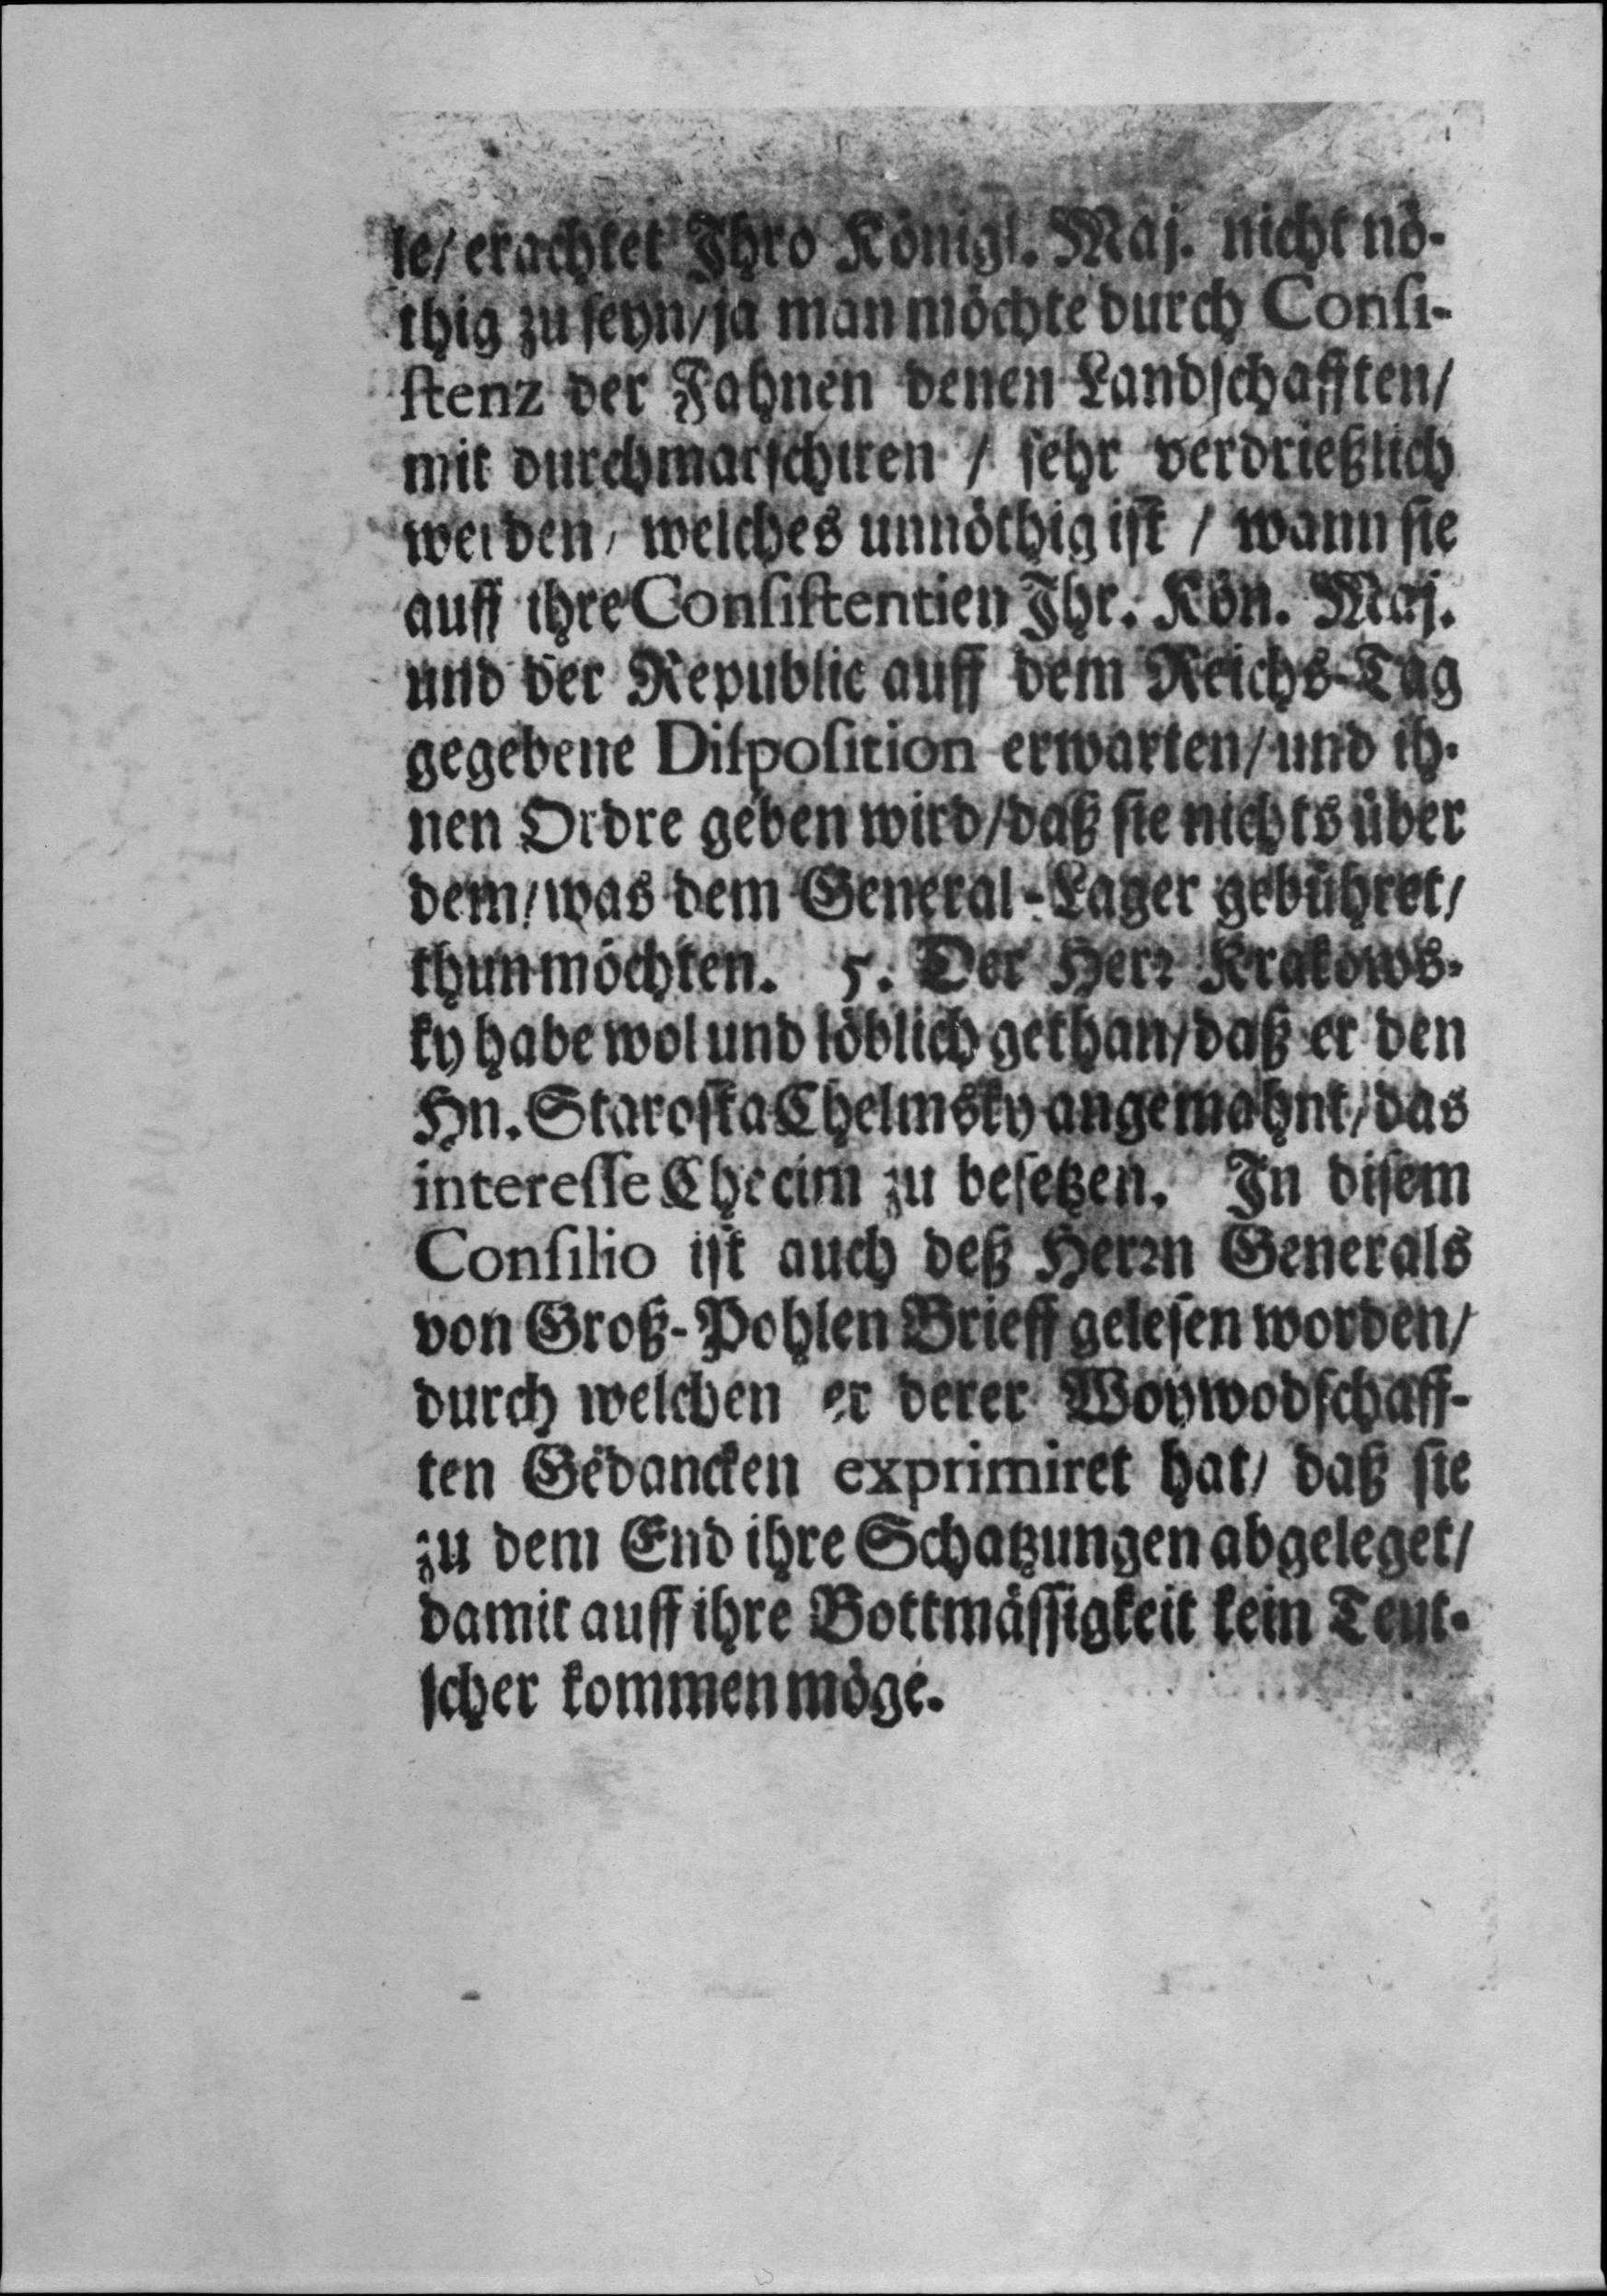 le/ erachtet Ihro Königl. Maj. nicht nö-
thig zu seyn/ ja man möchte durch Consi-
stenz der Fahnen denen Landschafften/
mit durchmarschiren / sehr verdrießlich
werden/ welches unnöthig ist / wann sie
auff ihre Consistentien Ihr. Kön. Maj.
und der Republic auff dem Reichs-Tag
gegebene Disposition erwarten/ und ih-
nen Ordre geben wird/ daß sie nichts über
dem/ was dem General-Lager gebühret/
thun möchten. 5. Der Herr Krakows-
ky habe wol und löblich gethan/ daß er den
Hn. Starosta Chelmsky angemahnt/ das
interesse Chocim zu besetzen. In disem
Consilio ist auch deß Herrn Generals
von Groß-Pohlen Brieff gelesen worden/
durch welchen er derer Woywodschaff-
ten Gedancken exprimiret hat/ daß sie
zu dem End ihre Schatzungen abgeleget/
damit auff ihre Bottmässigkeit kein Teut-
scher kommen möge.